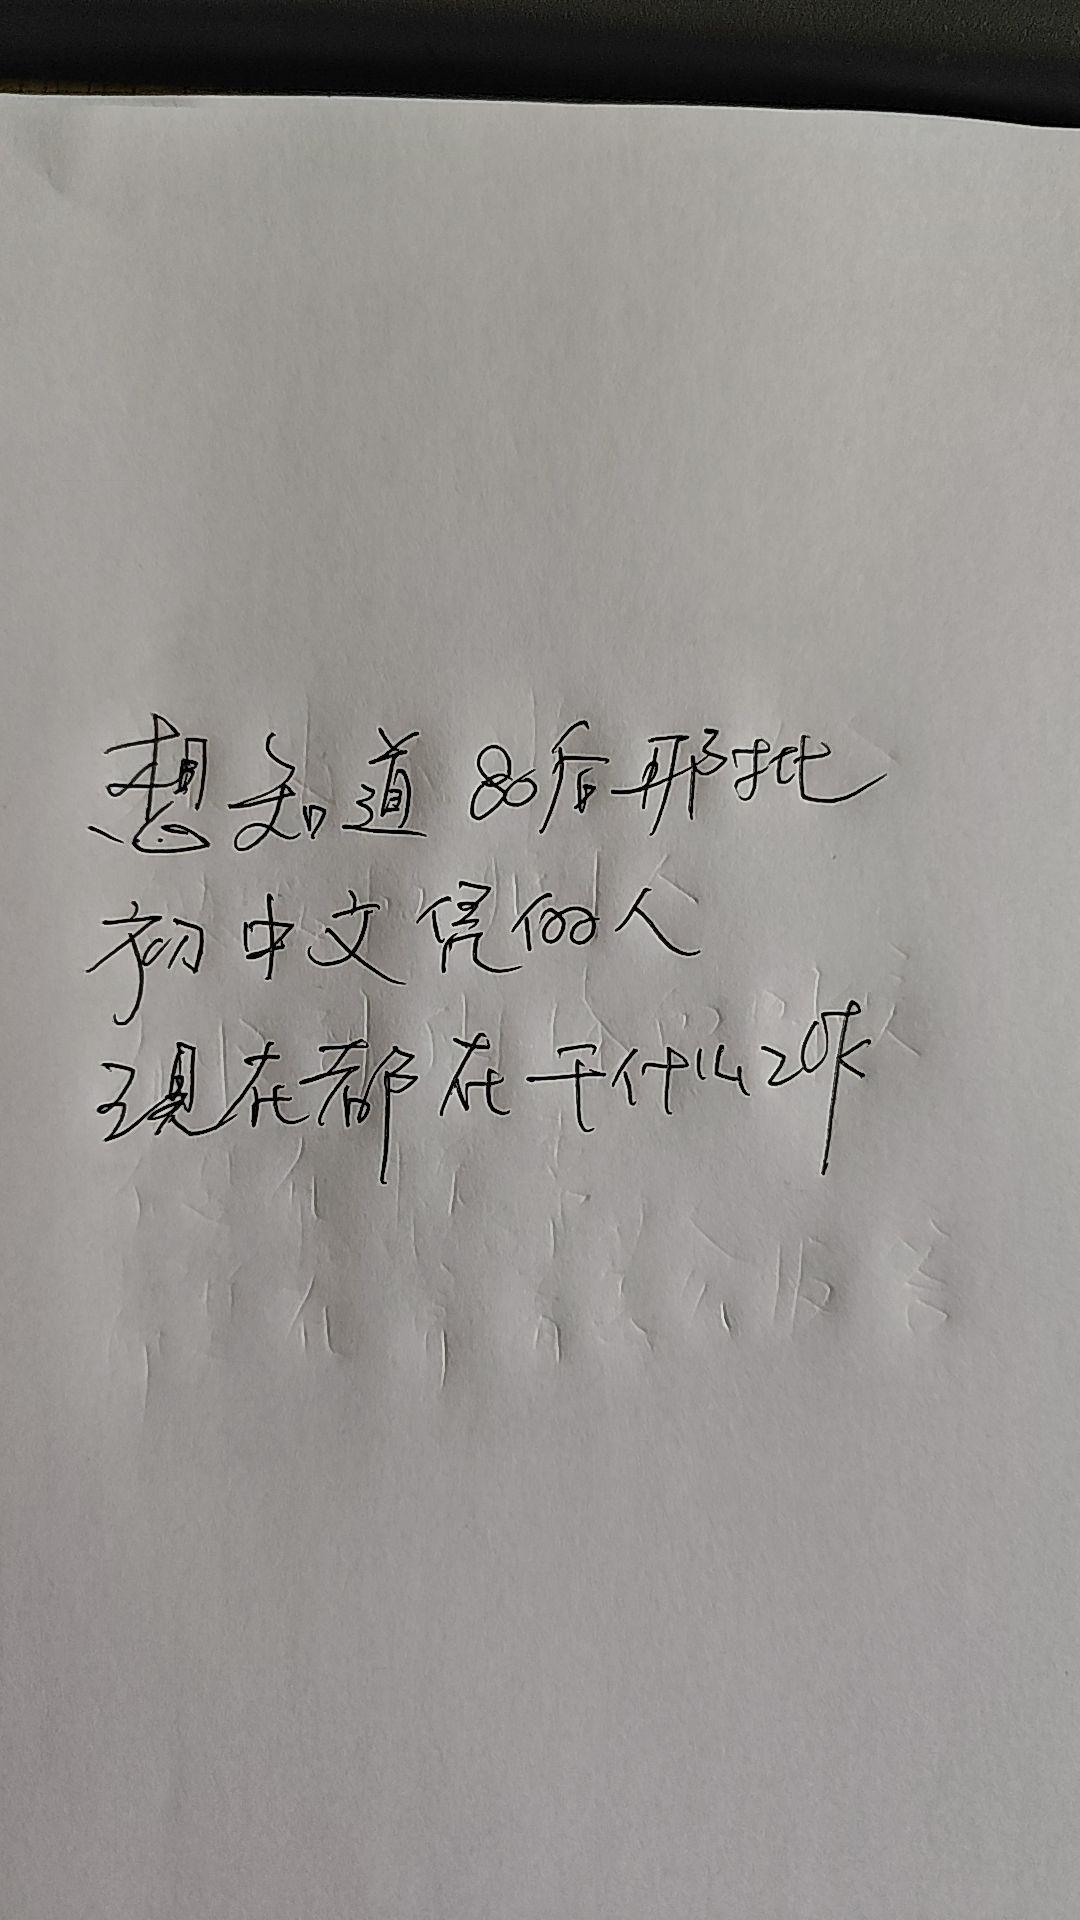 想知道80后那批
初中文凭的人
现在都在干什么呀